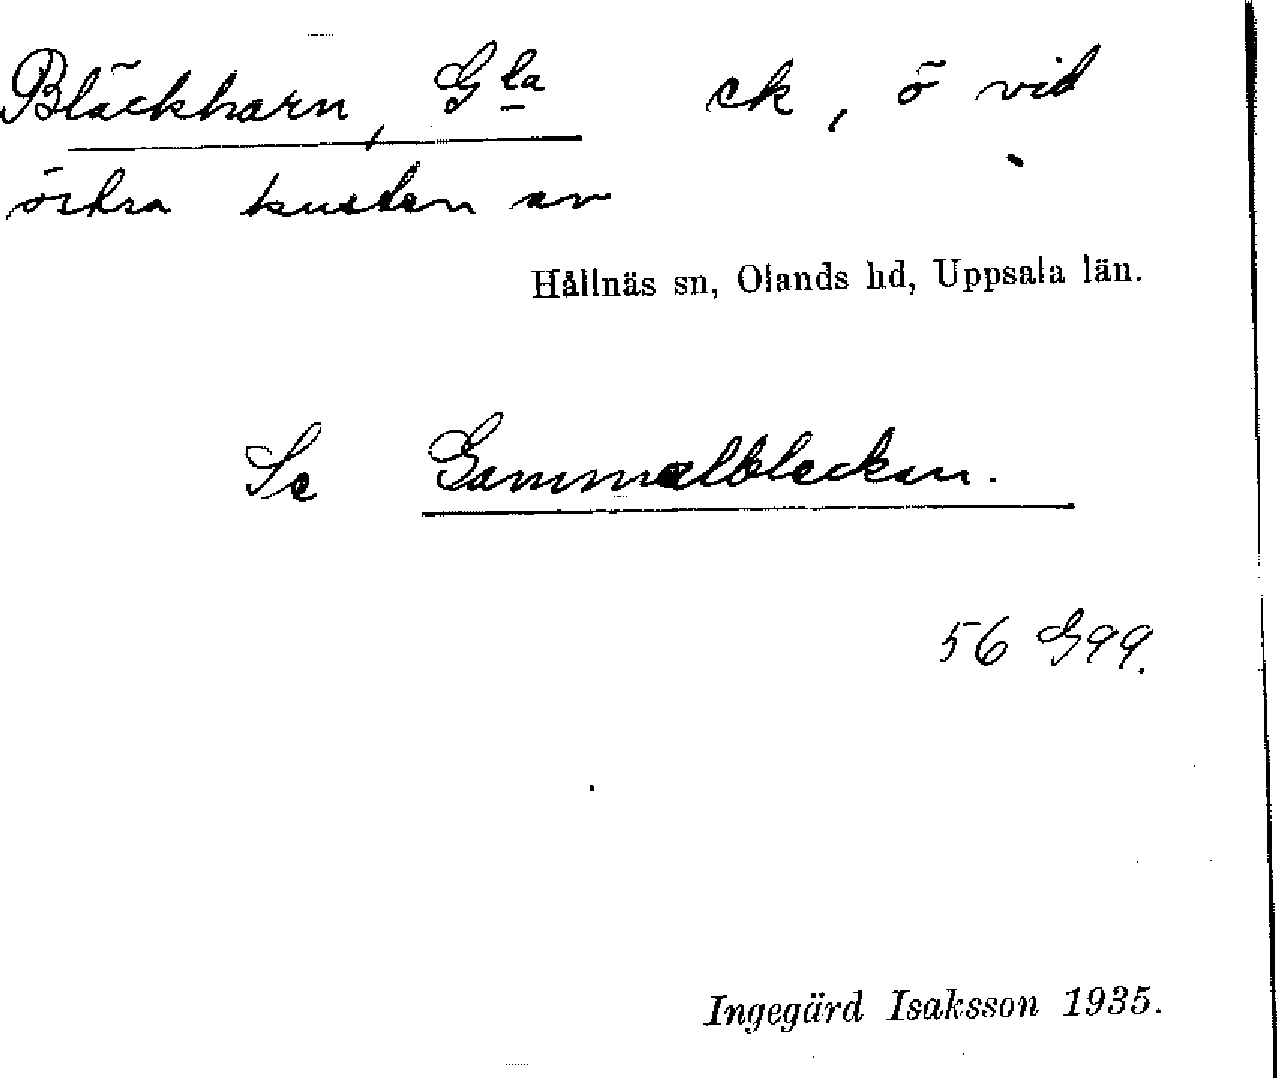 Bläckharn, Gla ek, ö vid
östra kusten av
Hållnäs sn, Olands hd, Uppsala län.
Se Gammalbleckan.
56 G99.
Ingegärd Isaksson 1935.